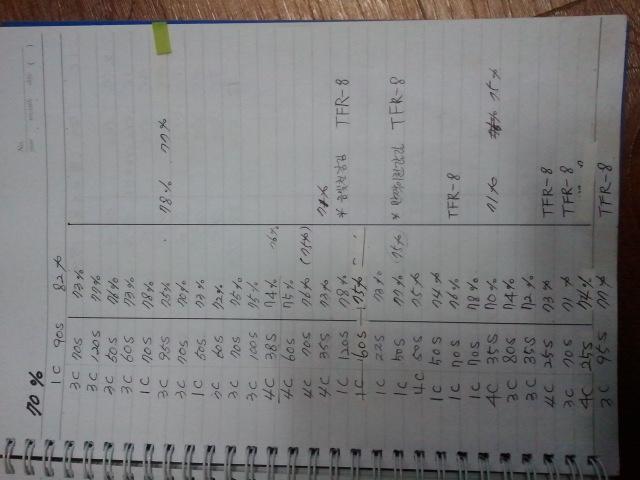 70%
1C 90S 82%
3C 70S 73%
3C 120S 73%
3C 50S 76%
3C 60S 73%
1C 70S 78%
3C 95S 75% 78% 77%
3C 70S 70%
1C 50S 73%
60S 72%
3C 70S 75%
3C 100S 75%
4C 38S 74% 76%
4C 60S 75%
4C 70S 76% (75%)
4C 35S 73%
1C 120S 78% TFR-8
1C 60S 75%
1C 22S 73%
1C 50S 77% 75% TFR-8
4C 60S 75%
1C 50S 74%
1C 70S 76% TFR-8
1C 70S 78%
4C 35S 70% 71% 75%
3C 80S 74%
3C 35S 72%
4C 25S 73% TFR-8
3C 70S 71% TFR-8
4C 25S 74% " "
3C 95S 77% TFR-8